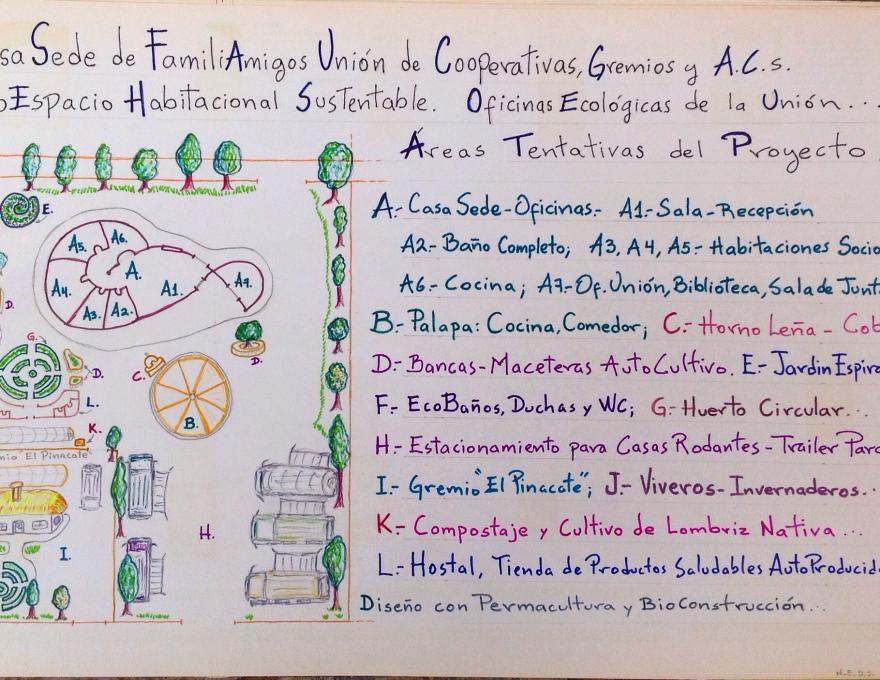 sa Sede de FamiliAmigos Unión de Cooperativas, Gremios y A.C.s.
Espacio Habitacional Sustentable. Oficinas Ecológicas de la Unión...
Áreas Tentativas del Proyecto
A.- Casa Sede-Oficinas.- A1.- Sala-Recepción
A2.- Baño Completo; A3, A4, A5.- Habitaciones Socio
A6.- Cocina; A7.- Of. Unión, Biblioteca, Sala de Junt
B.- Palapa: Cocina, Comedor; C.- Horno Leña - Cob
D.- Bancas-Maceteras AutoCultivo. E.- Jardin Espira
F.- EcoBaños, Duchas y WC; G.- Huerto Circular...
H.- Estacionamiento para Casas Rodantes - Trailer Parc
I.- Gremio "El Pinacate"; J.- Viveros-Invernaderos...
K.- Compostaje y Cultivo de Lombriz Nativa...
L.- Hostal, Tienda de Productos Saludables AutoProducid
Diseño con Permacultura y BioConstrucción...
E.
A5. A6.
A.
A4. A1. A7.
A3. A2.
D.
D.
G.
C.
D.
L.
B.
K.
mio "El Pinacate"
H.
I.
H.E.D.S.